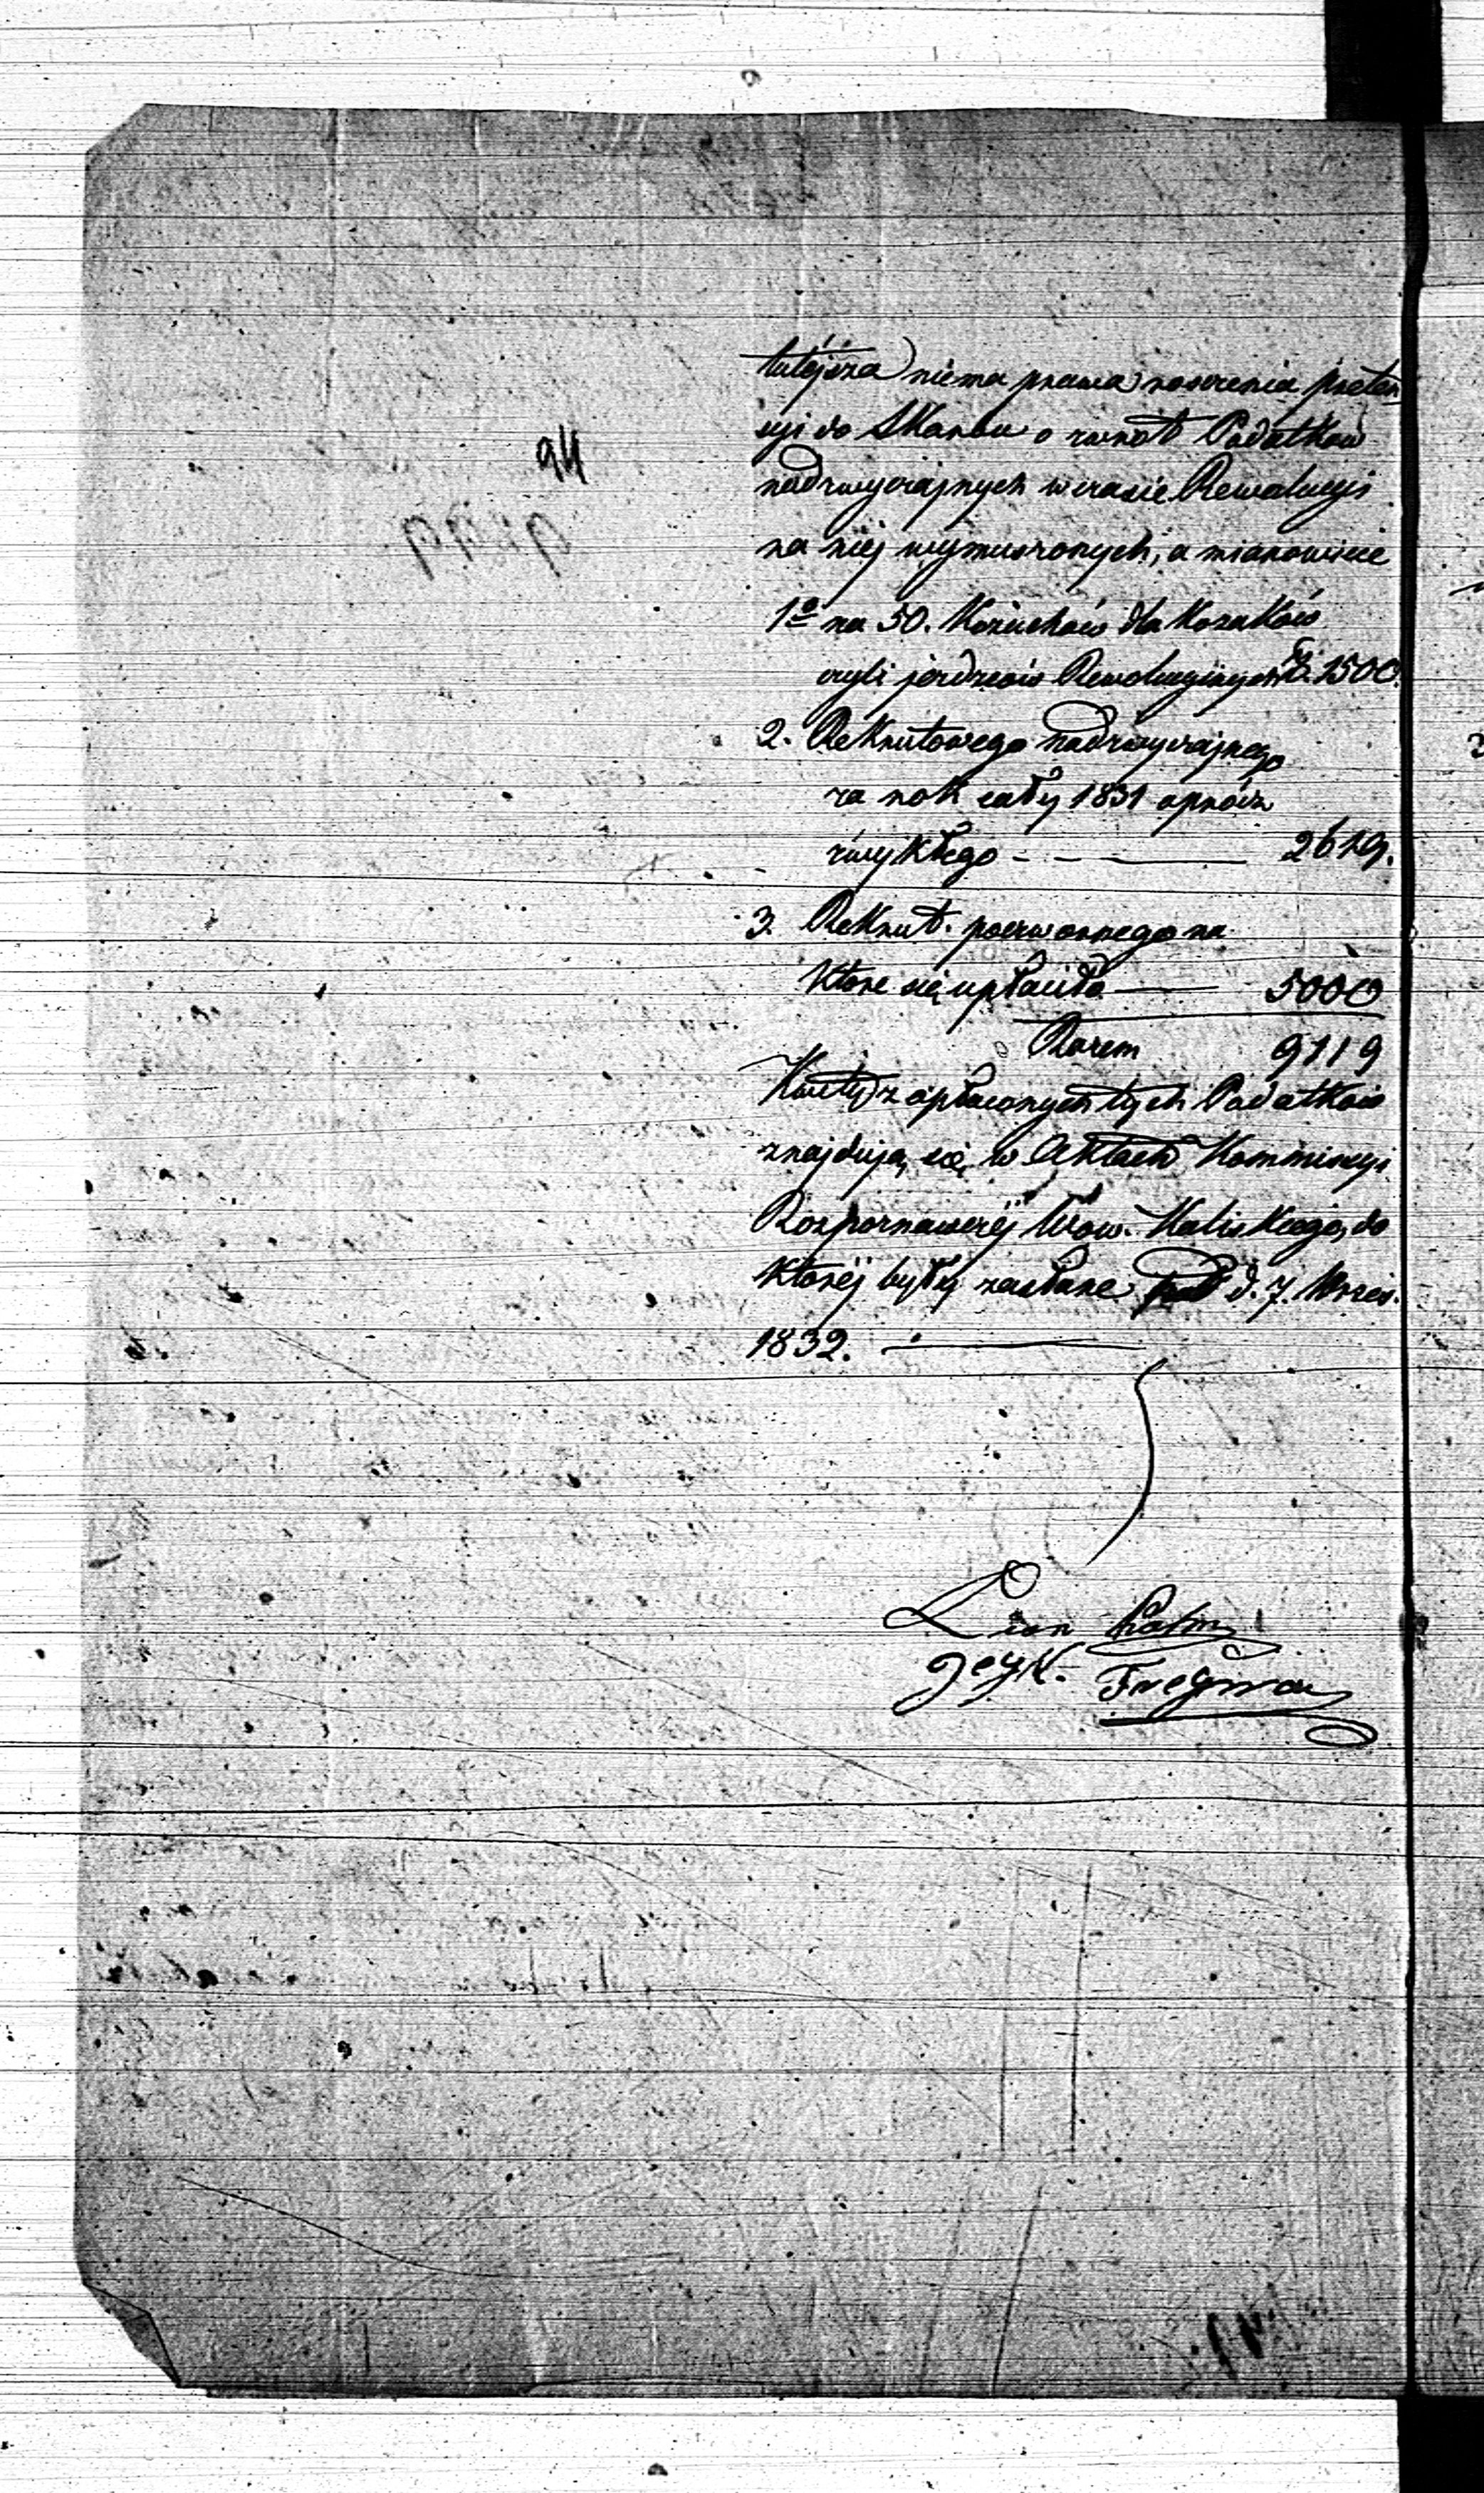 94
tutejsza niema prawa roszczenia preten
syi do Skarbu o zwrot Podatków
nadzwyczajnych w czasie Rewolucyi
na niéj wymuszonych, a mianowicie
1º na 50. Kożuchów dla Kozaków
czyli jezdzców Rewolucyinych f. 1500.
2. Rekrutowego nadzwyczajnego
za rok cały 1831 oprócz
zwykłego - - — 2619.
3. Rekrut. poerwonnego na
które się upłaciło — 5000
Razem 9119
Kwity z opłaconych tych Podatków
znajdują się w Aktach Kommissyi
Rozpoznawczéj Wow. Kaliskiego, do
któréj były zasłane pod d. 7. Wrzes.
1832. —